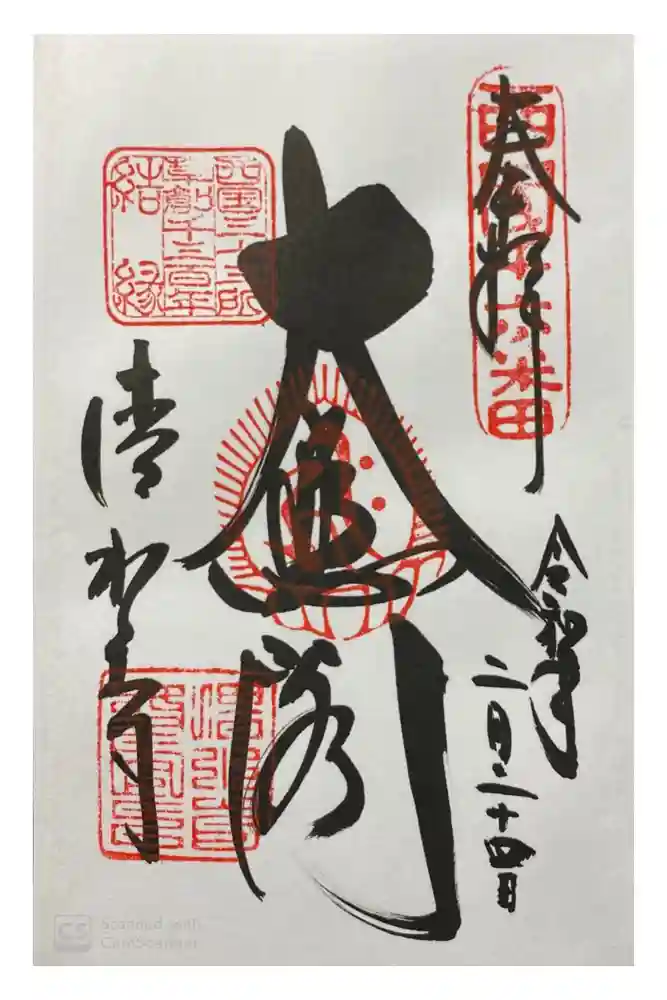 西国十六番
奉拝
令和年
二月二十四日
大悲閣
西国三十三所
草創千三百年
結縁
清水寺
CS Scanned with
CamScanner